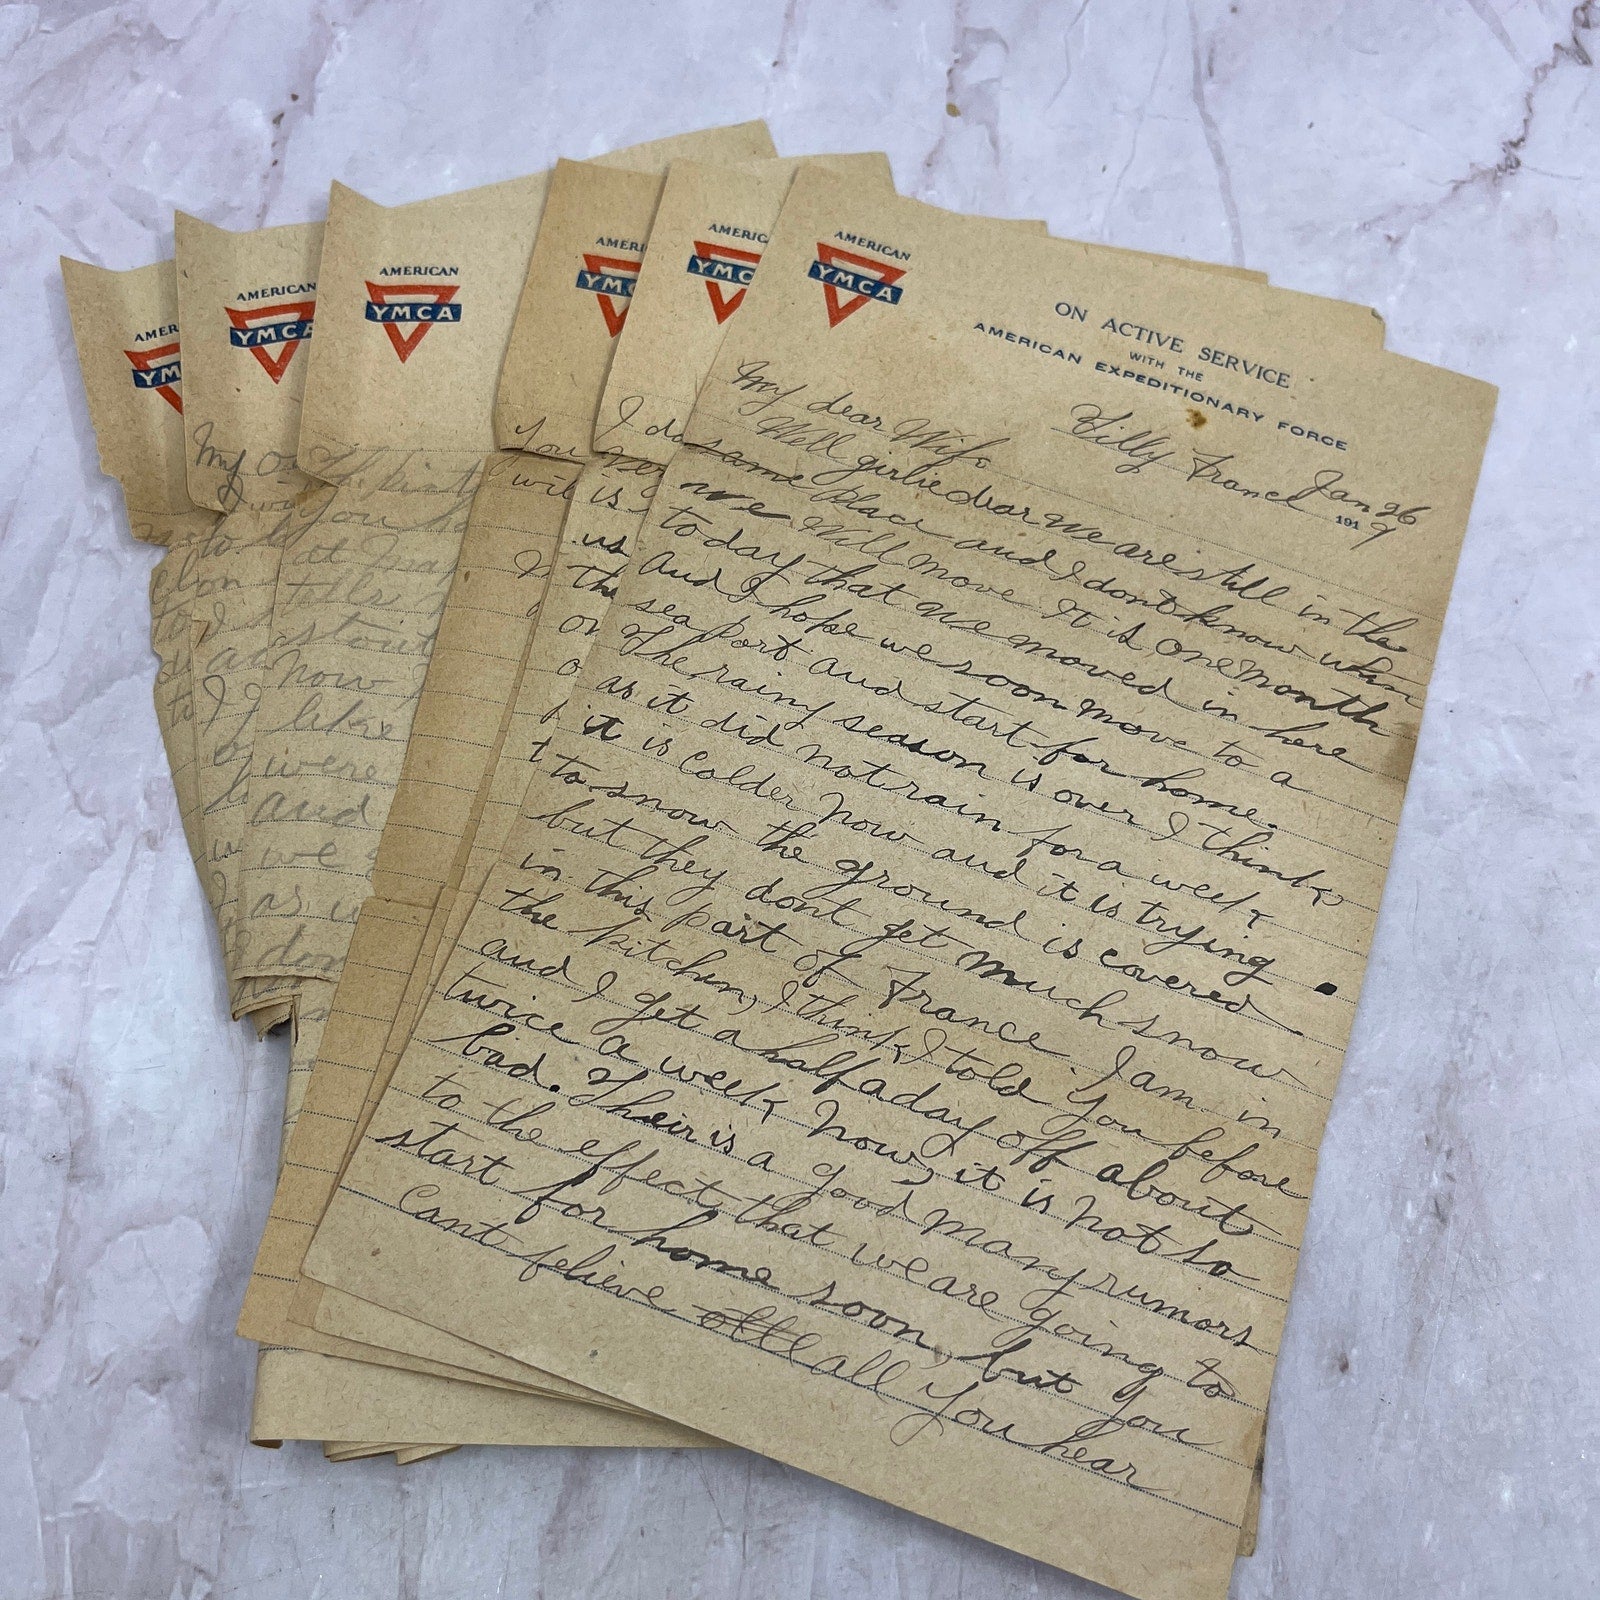 AMERICAN
YMCA
ON ACTIVE SERVICE
WITH THE
AMERICAN EXPEDITIONARY FORCE
Tilly France Jan 26
1919
My dear Wife
Well girlie dear we are still in the
same place and I dont know when
we Will move. It is one month
today that we moved in here
And I hope we soon move to a
sea port and start for home.
The rainy season is over I think
as it did not rain for a week
it is colder now and it is trying
to snow the ground is covered
but they dont get much snow
in this part of France. I am in
the kitchen, I think I told you before
and I get a half a day off about
twice a week now, it is not so
bad. Their is a good many rumors
to the effect that we are going to
start for home soon, but you
Cant felieve all you hear
AMERICAN
YMCA
I do
ver
is
us
the
AMERI
YMC
you
wil
AMERICAN
YMCA
The
you ha
at
tells
stout
Now
like
were
and
we
as
I don
AMERICAN
YMCA
My
I
to
AMER
YM